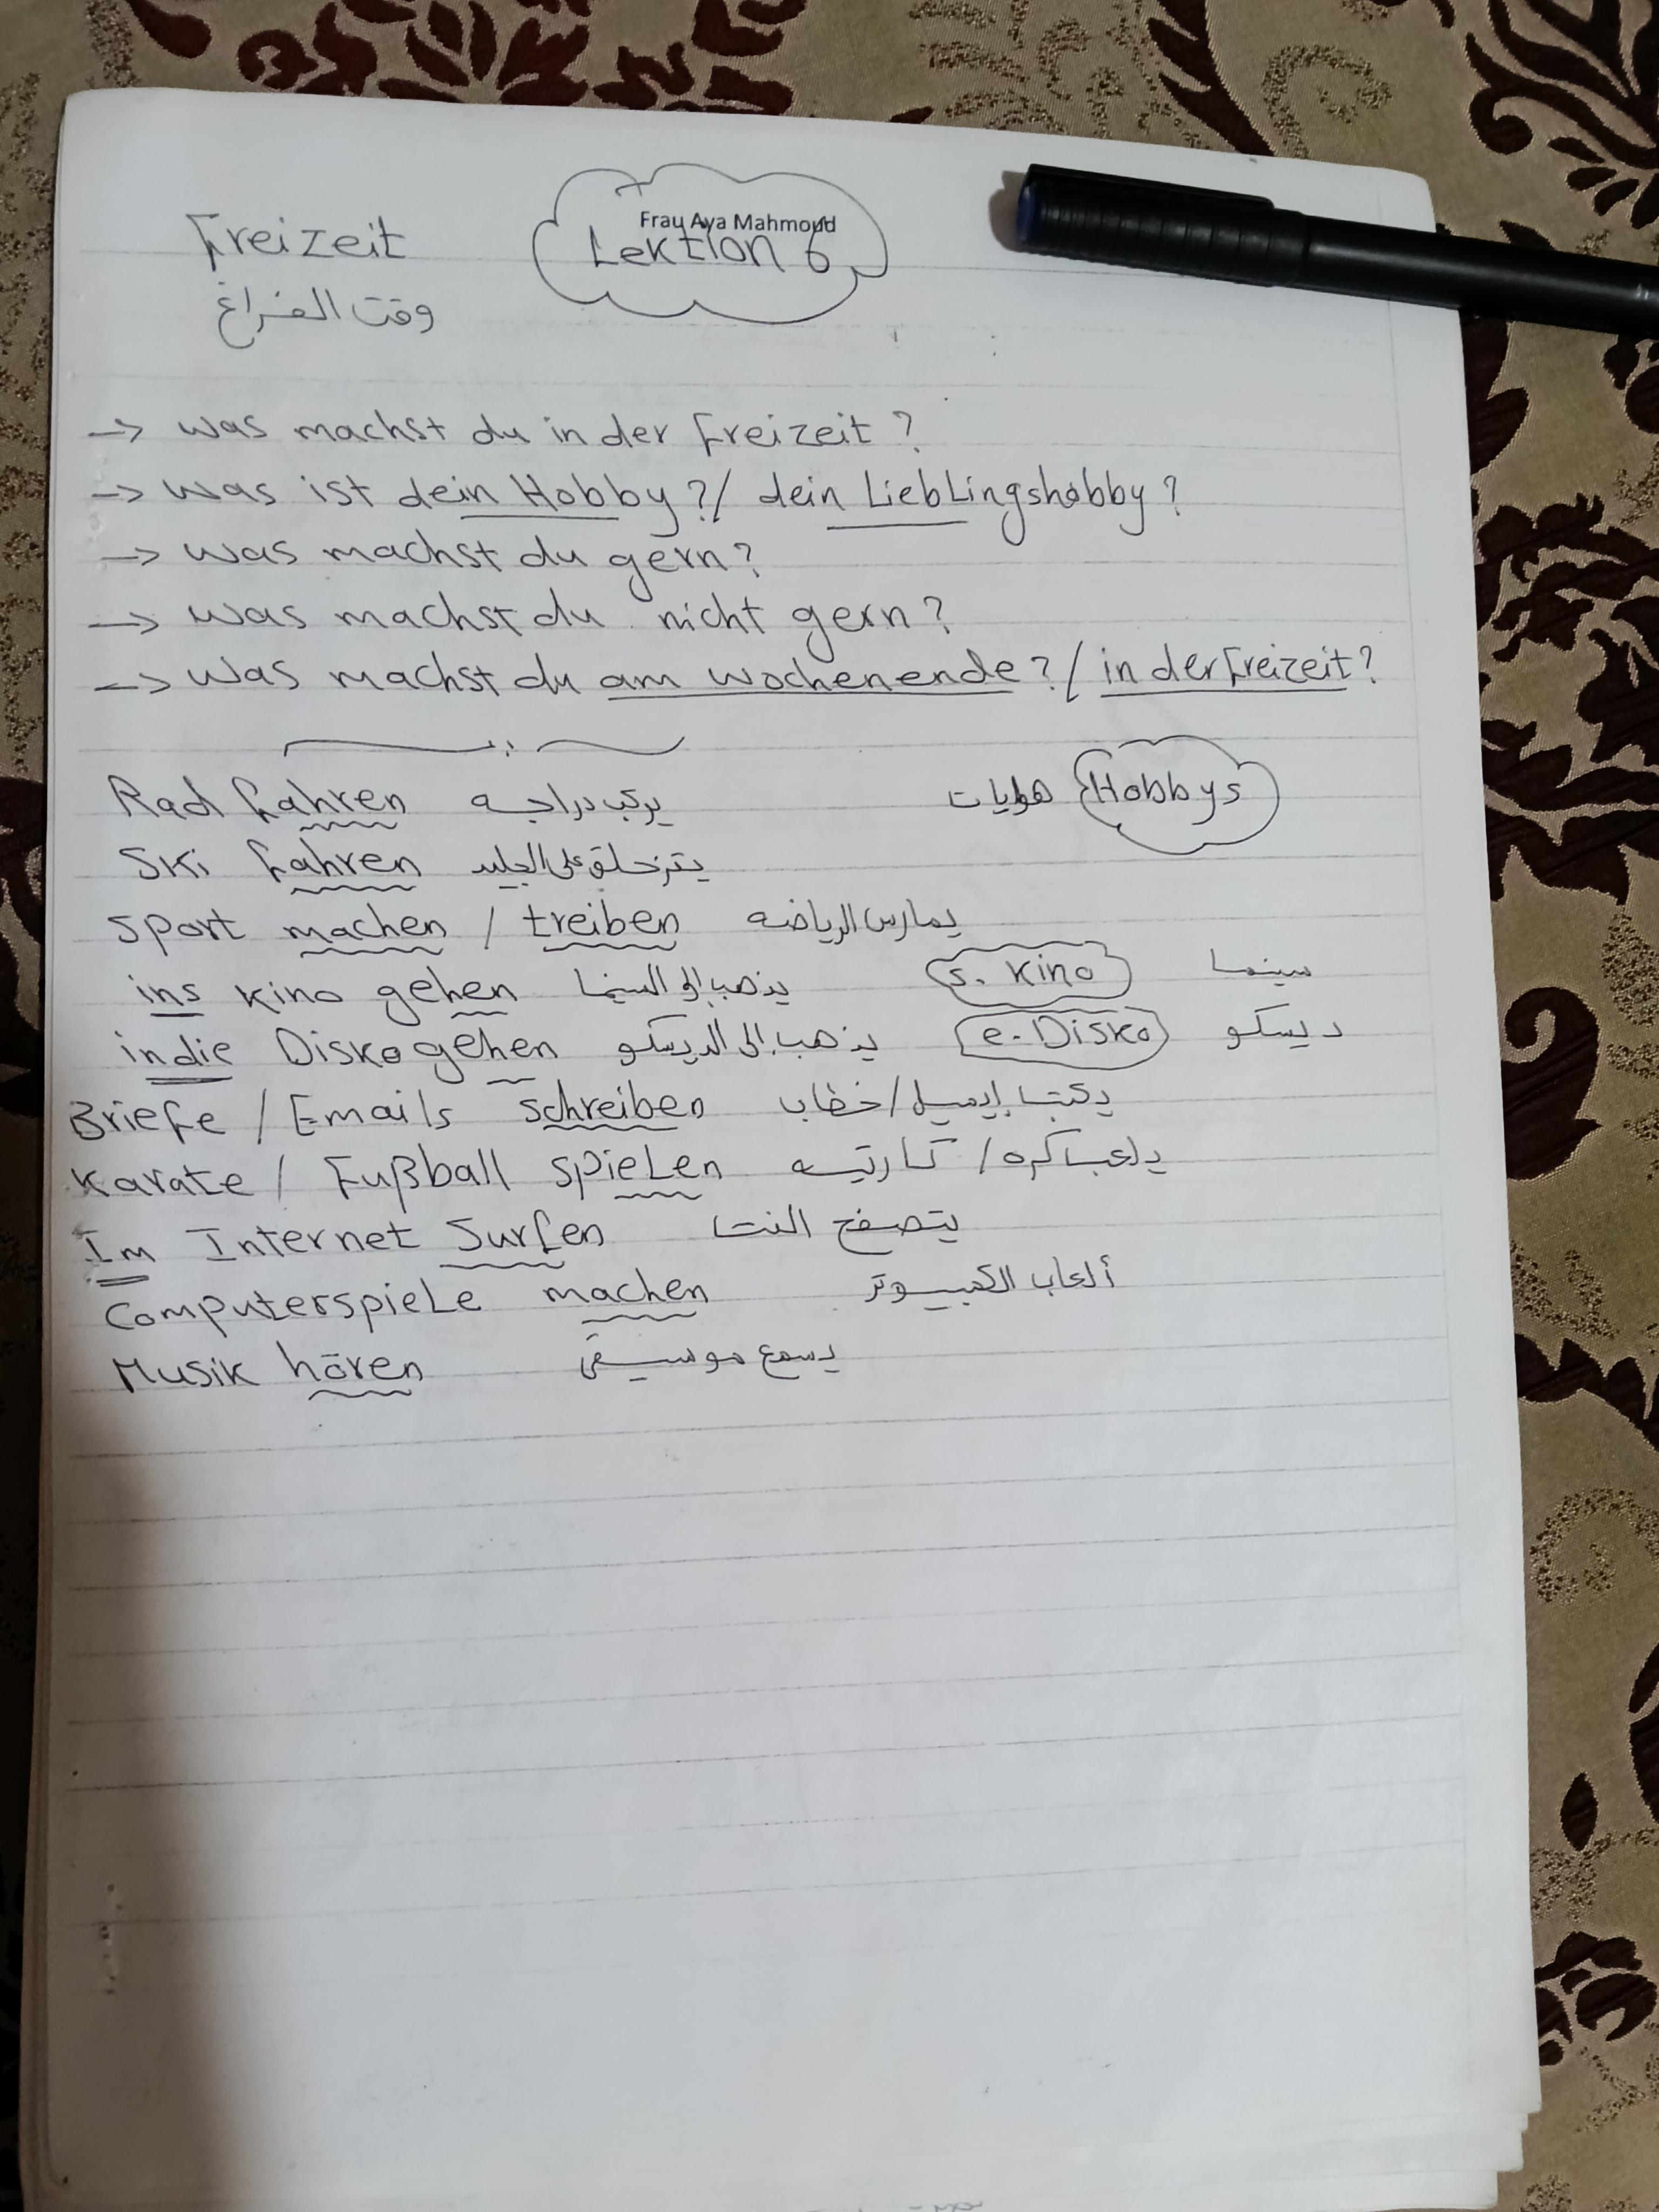 Frau Aya Mahmoud
Freizeit Lektion 6
وقت الفراغ
-> was machst du in der Freizeit?
-> was ist dein Hobby?/ dein Lieblingshobby?
-> was machst du gern?
-> was machst du nicht gern?
-> was machst du am wochenende?/ in der Freizeit?
Rad fahren يركب دراجه هوايات Hobbys
Ski fahren يتزحلق على الجليد
Sport machen / treiben يمارس الرياضه
ins kino gehen يذهب إلى السينما s. kino سينما
in die Disko gehen يذهب إلى الديسكو e. Disko ديسكو
Briefe / Emails schreiben يكتب إيميل/خطاب
Karate / Fußball spielen يلعب كره/ كارتيه
Im Internet Surfen يتصفح النت
Computerspiele machen ألعاب الكمبيوتر
Musik hören يسمع موسيقى